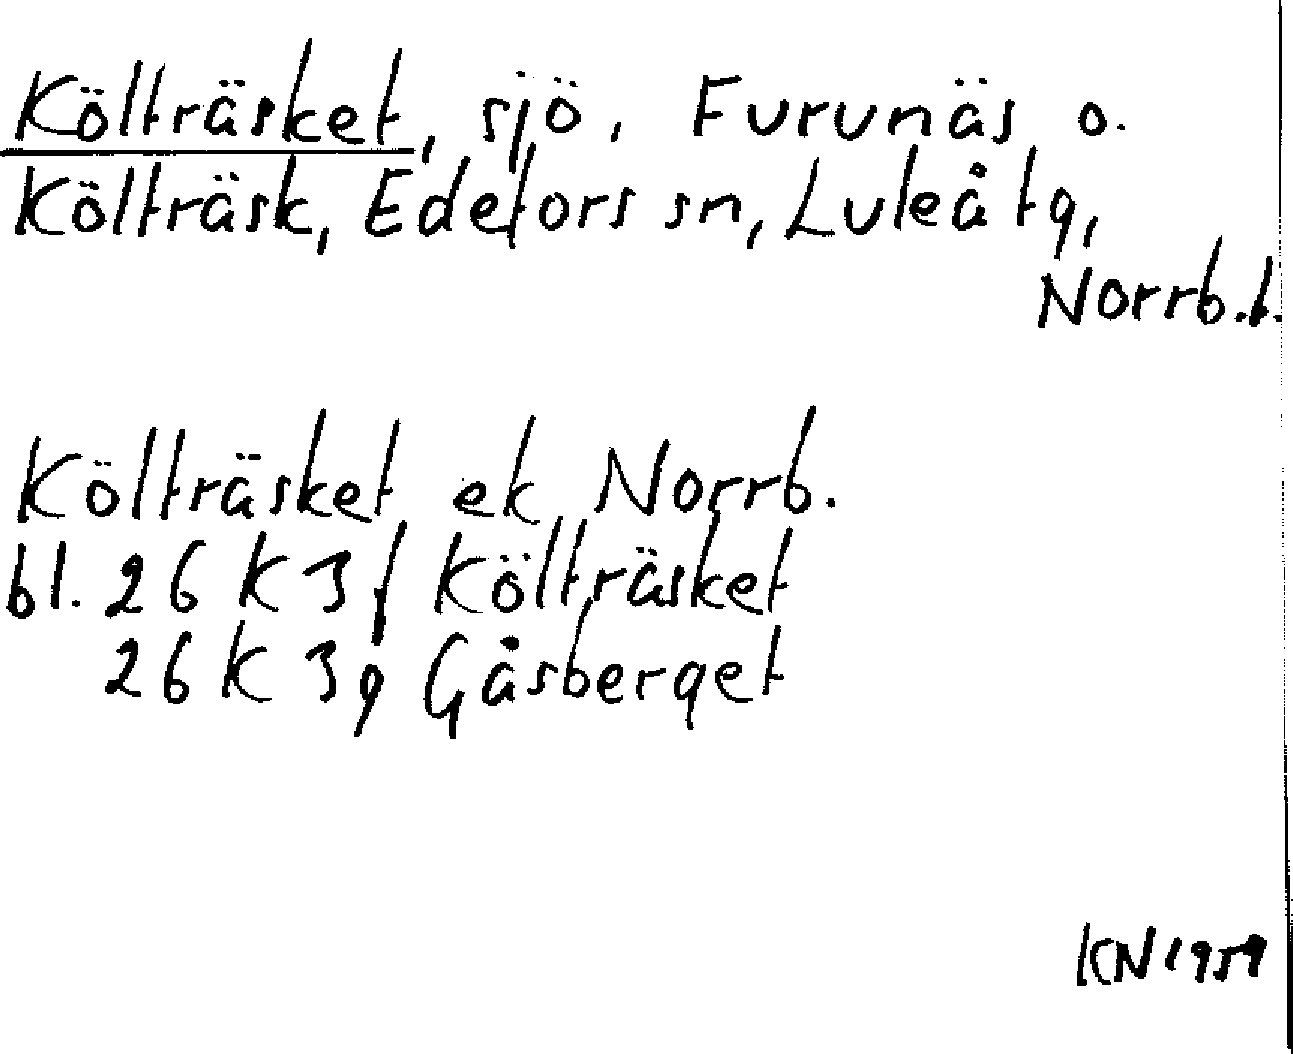 Költräsket, sjö, Furunäs o.
Költräsk, Edefors sn, Luleå tg,
Norrb.l.
Költräsket ek Norrb.
bl. 26 K 3f Költräsket
26 K 3g Gåsberget
KN 1959